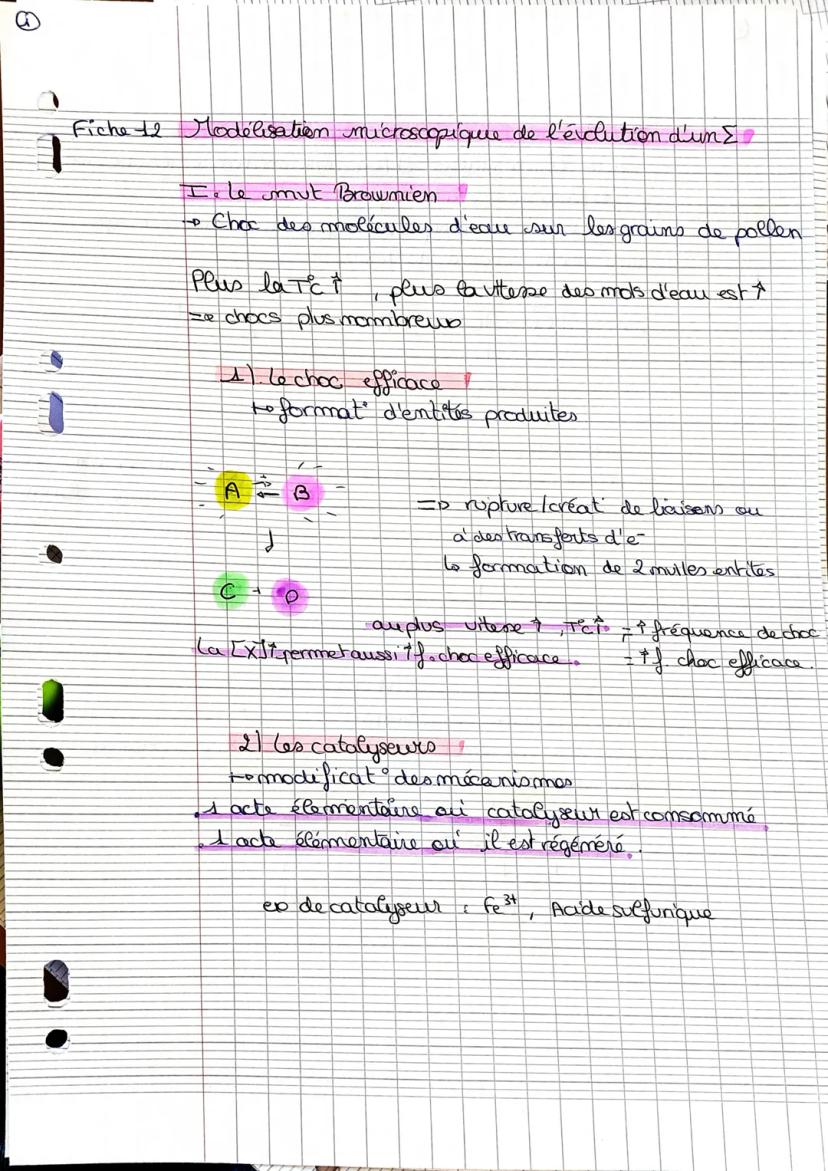 1
Fiche 12 Modélisation microscopique de l'évolution d'un Σ
I. Le mvt Brownien
→ Choc des molécules d'eau sur les grains de pollen
Plus la T°C ↑, plus la vitesse des mols d'eau est ↑
=> chocs plus nombreux
1) Le choc efficace
↳ format° d'entités produites
A ⇄ B
=> rupture/créat° de liaisons ou
à des transferts d'e-
↳ formation de 2 nvlles entités
C + D
au plus vitesse ↑, T°C↑ = ↑ fréquence de choc
La [X]↑ permet aussi ↑f. choc efficace. = ↑f choc efficace.
2) Les catalyseurs
↳ modificat° des mécanismes
. 1 acte élémentaire où catalyseur est consommé
. 1 acte élémentaire où il est régénéré.
ex de catalyseur : Fe³⁺, Acide sulfurique